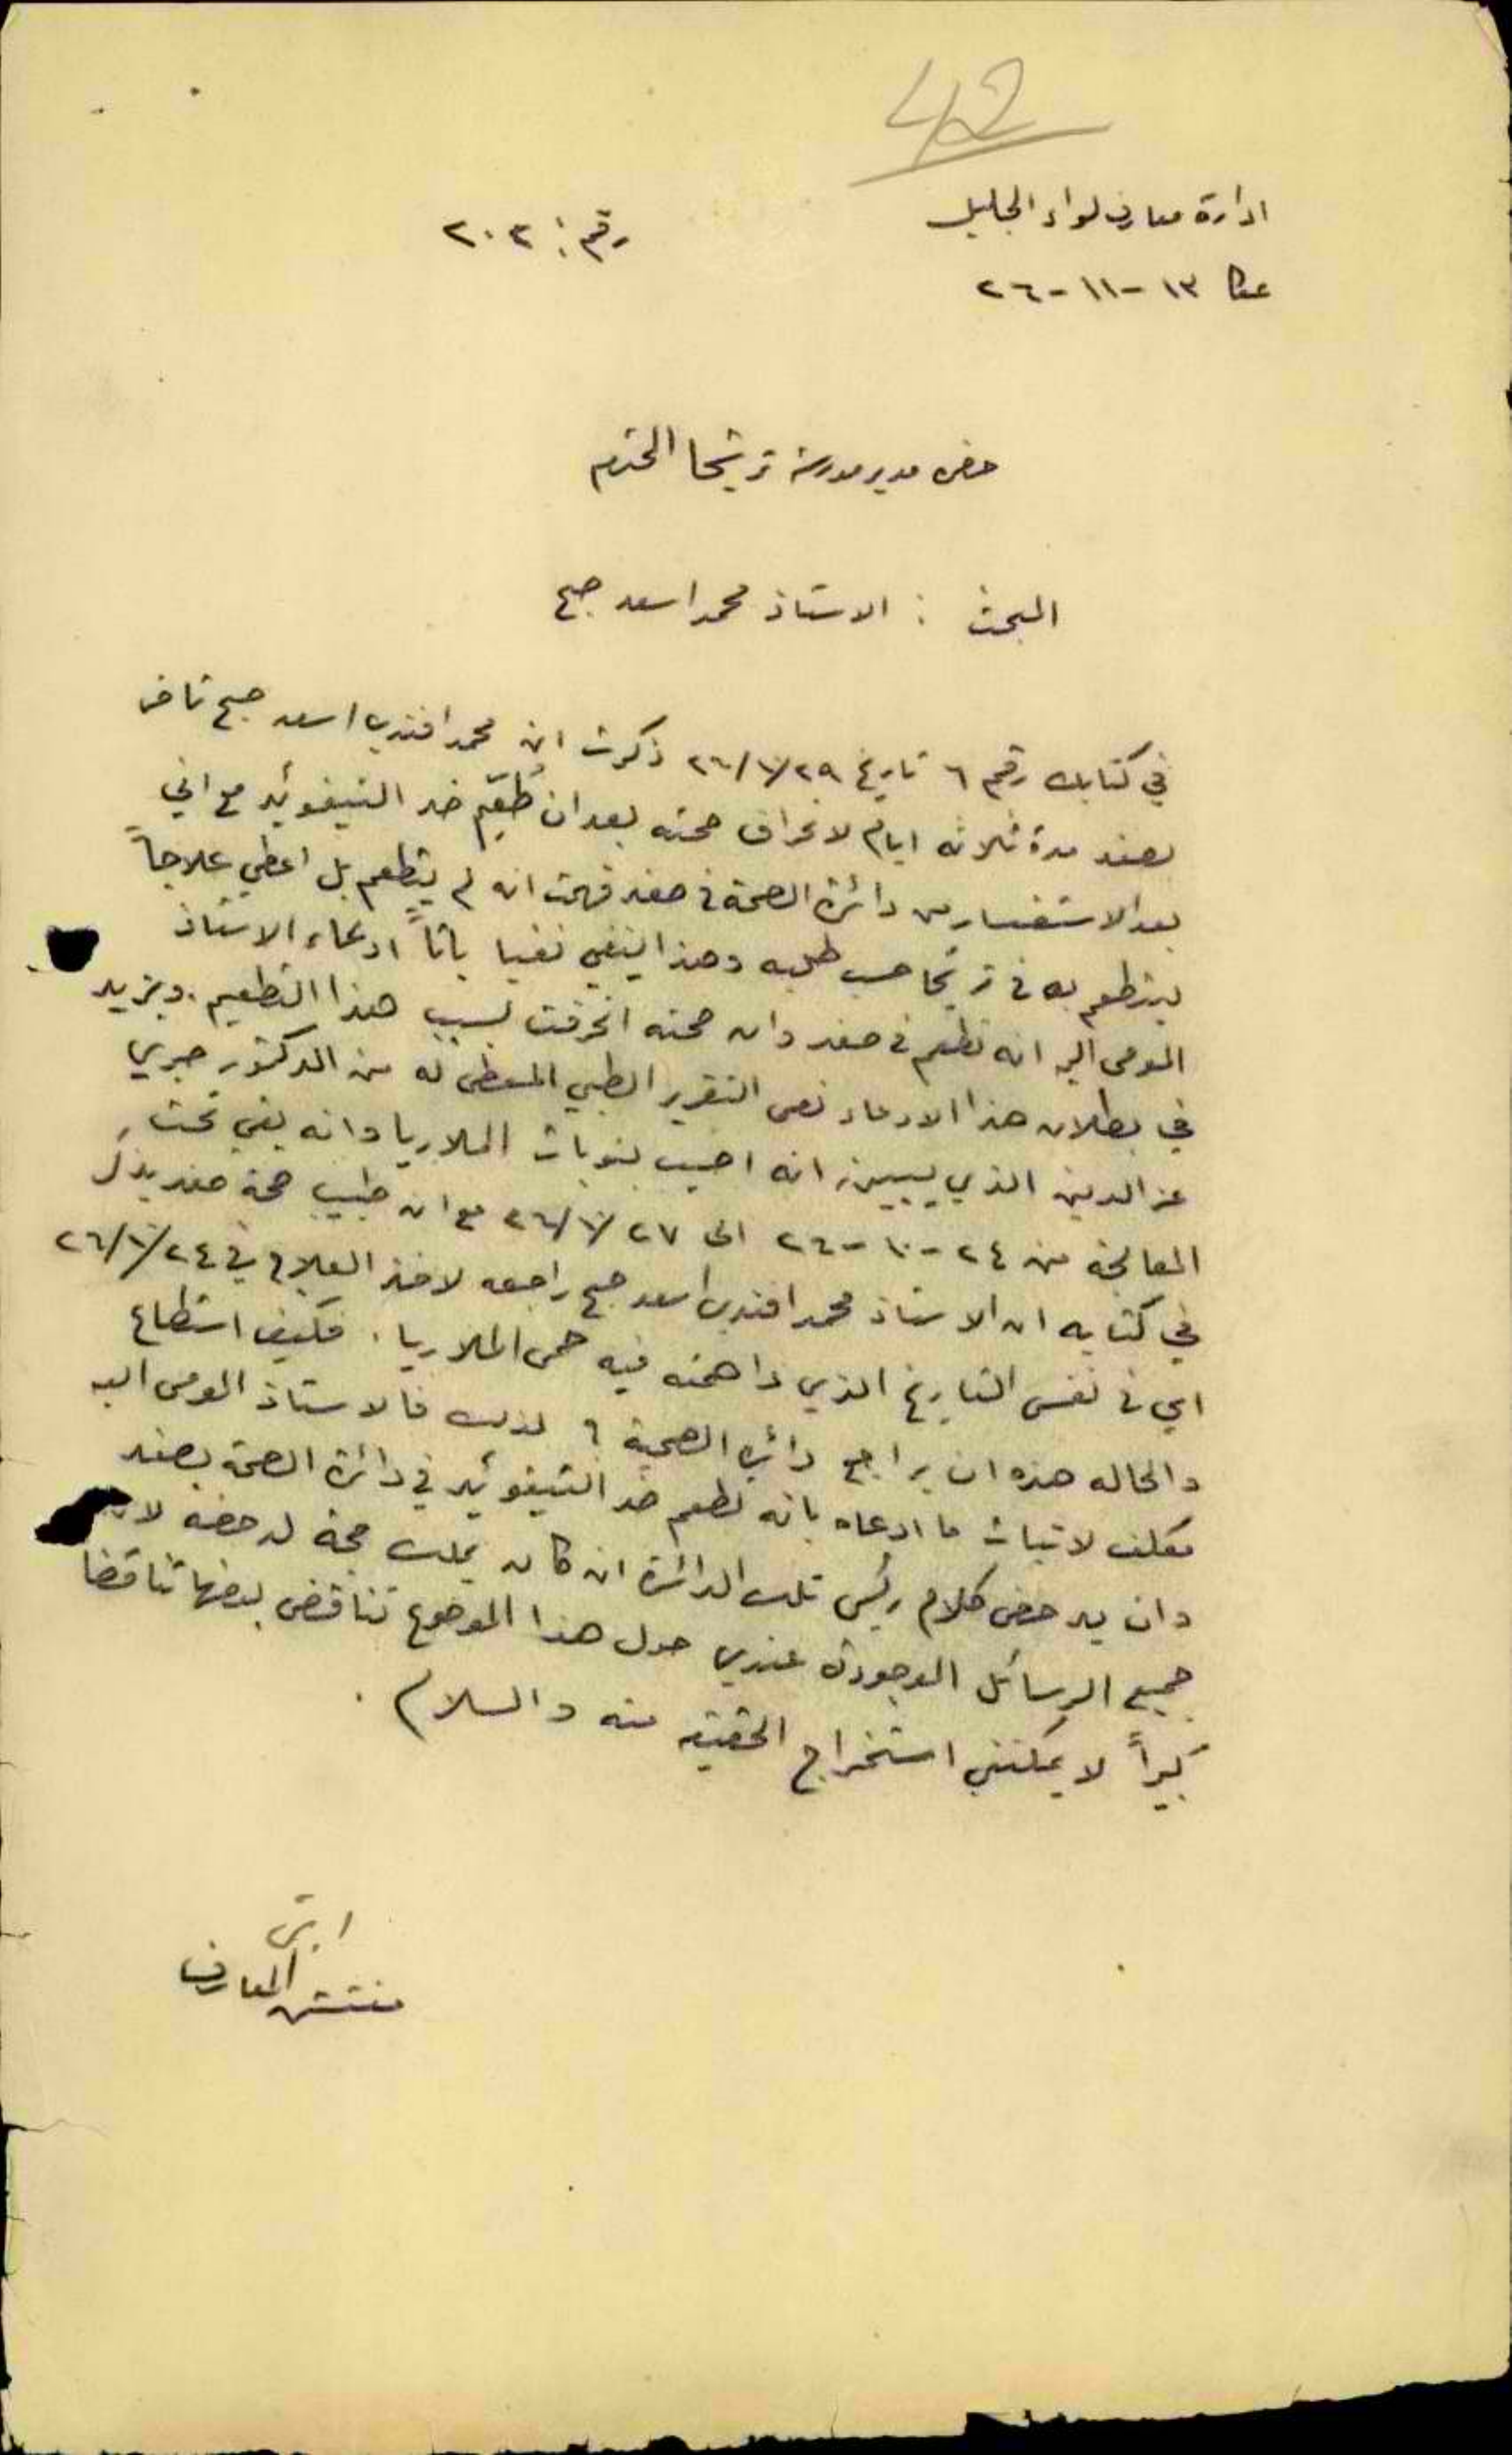 42
ادارة معارف لواء الجليل
رقم : ٢٠٢
عكا ١٣-١١-٢٦
حضرة مدير مدرسة ترشيحا المحترم
البحث : الاستاذ محمد اسعد صبح
في كتابك رقم ٦ تاريخ ٢٩/١٠/٢٦ ذكرت ان محمد افندي اسعد صبح تأخر
بصفد مدة ثلاثة ايام لانحراف صحته بعد ان طُعّم ضد التيفوئيد مع اني
بعد الاستفسار من دائرة الصحة في صفد فهمت انه لم يتطعم بل اعطي علاجاً
ليتطعم به في ترشيحا حسب طلبه وهذا ينفي نفيا باتاً ادعاء الاستاذ
المومى اليه انه تطعم في صفد وان صحته انحرفت بسبب هذا التطعيم. ويزيد
في بطلان هذا الادعاء نص التقرير الطبي المعطى له من الدكتور صبري
عز الدين الذي يبين انه اصيب بنوبات الملاريا وانه بقي تحت
المعالجة من ٢٤-١٠-٢٦ الى ٢٧/١٠/٢٦ مع ان طبيب صحة صفد يذكر
في كتابه ان الاستاذ محمد افندي اسعد صبح راجعه لاخذ العلاج في ٢٤/١٠/٢٦
اي في نفس التاريخ الذي داهمته فيه حمى الملاريا. فكيف استطاع
والحالة هذه ان يراجع دائرة الصحة ؟ لذلك فالاستاذ المومى اليه
مكلف لاثبات ما ادعاه بانه تطعم ضد التيفوئيد في دائرة الصحة بصفد
وان يدحض كلام رئيس تلك الدائرة ان كان يملك حجة لدحضه لان
جميع الرسائل الموجودة عندي حول هذا الموضوع تناقض بعضها تناقضا
كبيراً لا يمكنني استخراج الحقيقة منه والسلام .
مفتش المعارف